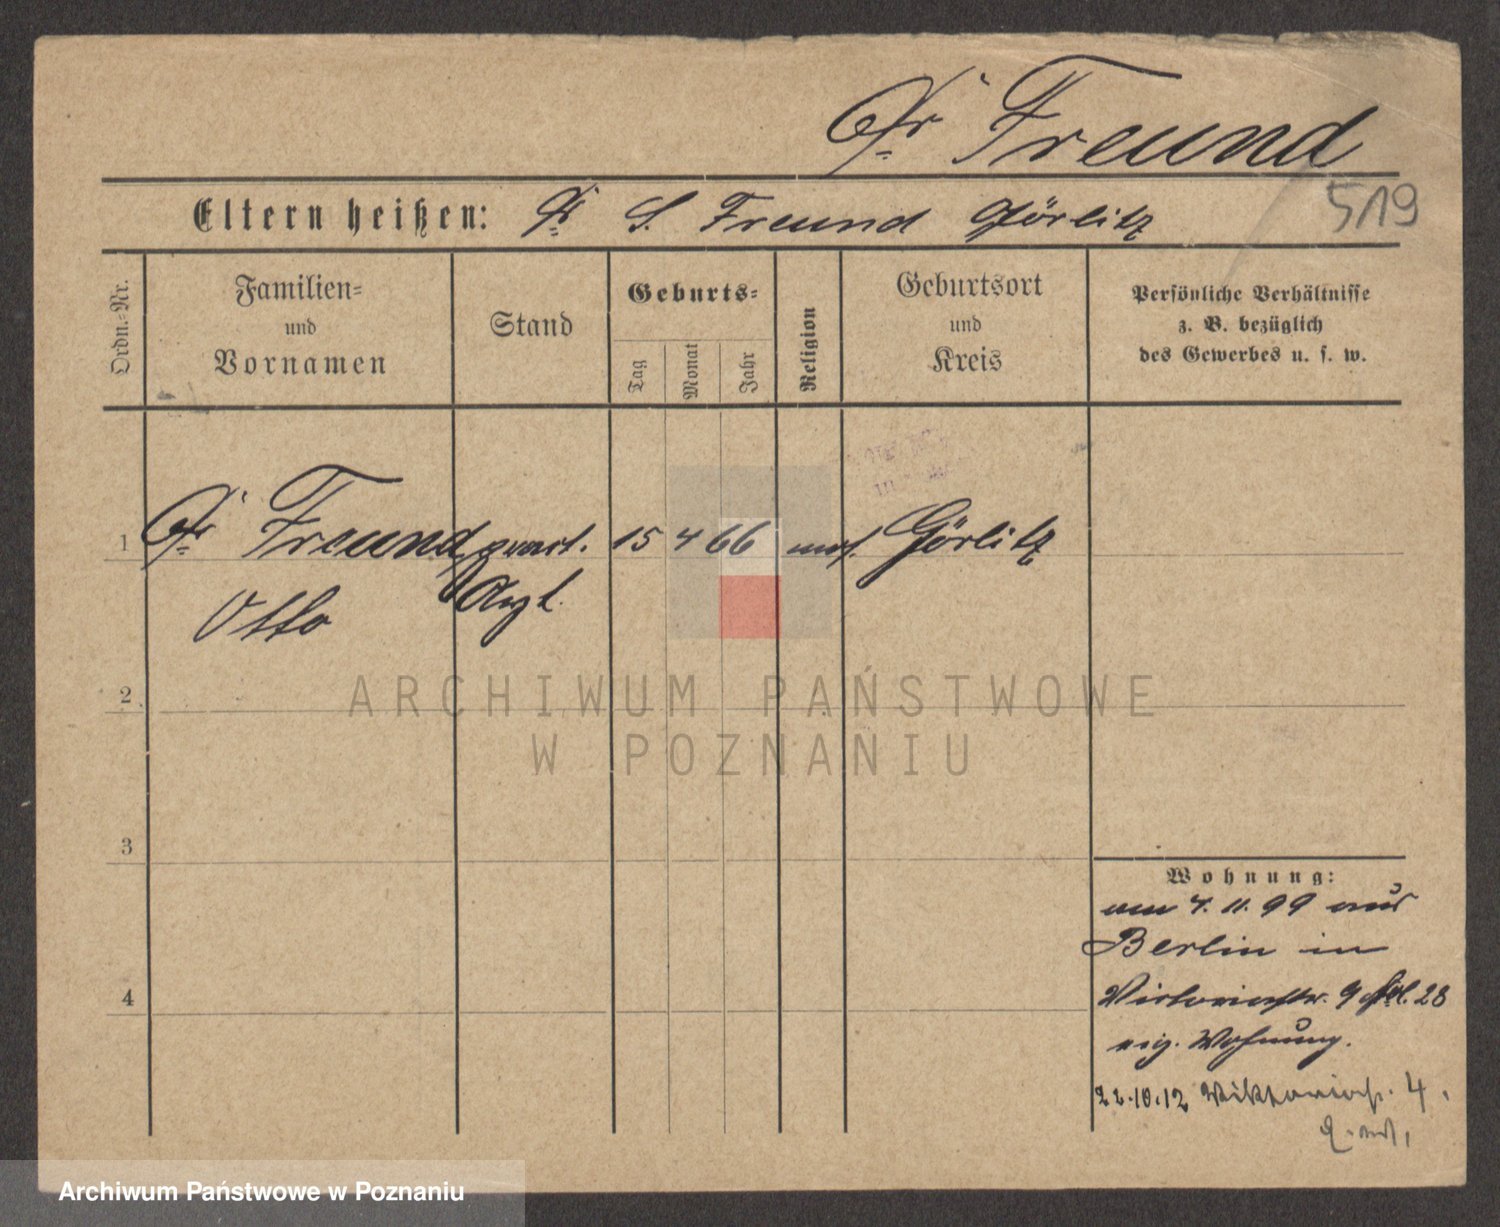 Dr Freund
519
Eltern heißen: Dr S. Freund Görlitz
Ordn.-Nr.
Familien-
und
Vornamen
Stand
Geburts-
Tag
Monat
Jahr
Religion
Geburtsort
und
Kreis
Persönliche Verhältnisse
z. B. bezüglich
des Gewerbes u. s. w.
1 Dr Freund pract. 15 4 66 mos. Görlitz
Otto Arzt.
2
ARCHIWUM PAŃSTWOWE
W POZNANIU
3
4
Wohnung:
am 4. 11. 99 aus
Berlin in
Victoriastr. 9 28
eig. Wohnung.
22.10.12 Viktoriastr. 4.
Archiwum Państwowe w Poznaniu